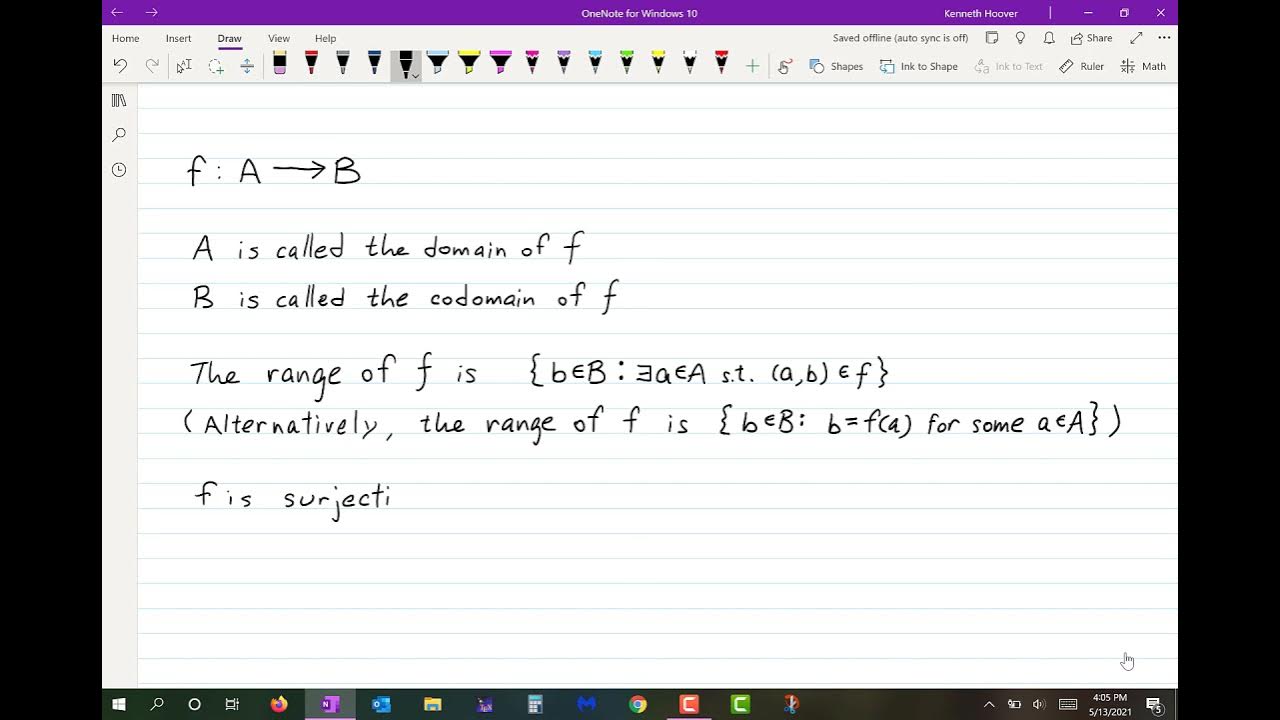 OneNote for Windows 10
Kenneth Hoover
Home Insert Draw View Help
Saved offline (auto sync is off)
Share
Shapes
Ink to Shape
Ink to Text
Ruler
Math
f : A → B
A is called the domain of f
B is called the codomain of f
The range of f is {b∈B : ∃a∈A s.t. (a,b) ∈ f}
(Alternatively, the range of f is {b∈B: b=f(a) for some a∈A})
f is surjecti
4:05 PM
5/13/2021
5